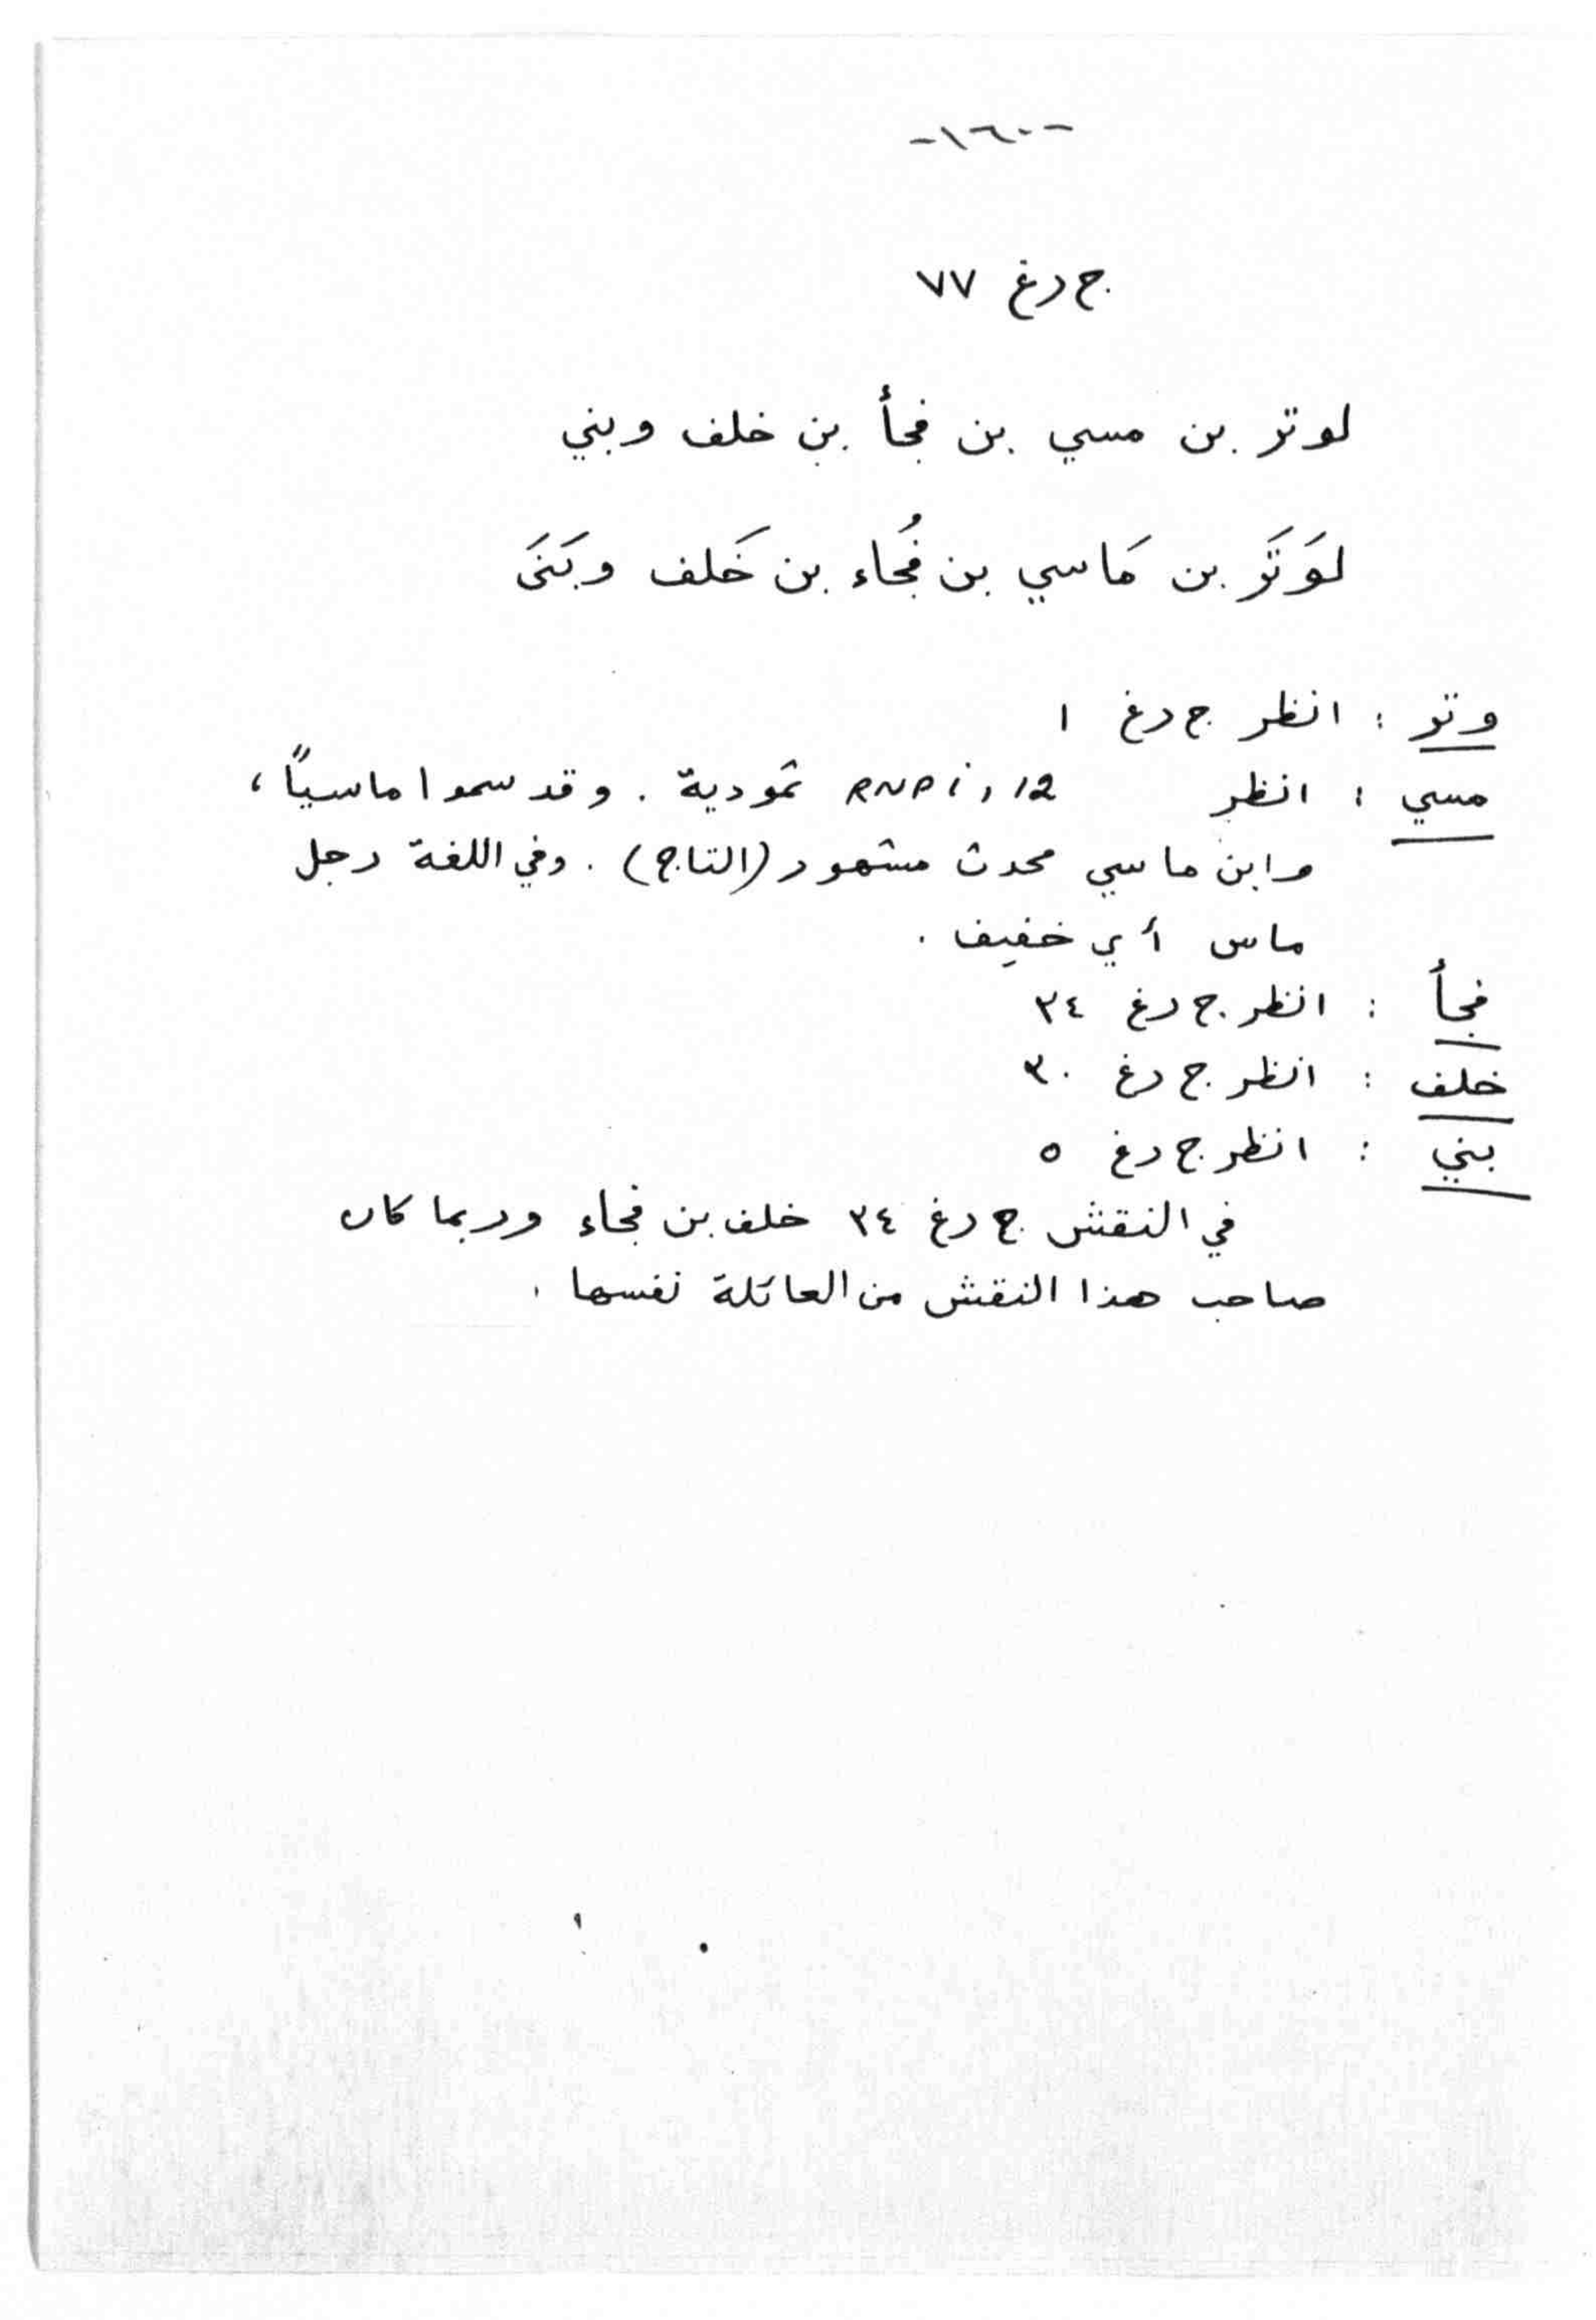 -١٦٠-
ج د غ ٧٧
لوتر بن مسي بن فجأ بن خلف وبني
لوَتَر بن مَاسي بن فُجاء بن خَلف وبَنَى
وتر : انظر ج د غ ١
مسي : انظر RNP i, 12 ثمودية . وقد سموا ماسياً ،
وابن ماسي محدث مشهور (التاج) . وفي اللغة رجل
ماس أي خفيف .
فجأ : انظر ج د غ ٣٤
خلف : انظر ج د غ ٣٠
بني : انظر ج د غ ٥
في النقش ج د غ ٣٤ خلف بن فجاء وربما كان
صاحب هذا النقش من العائلة نفسها .